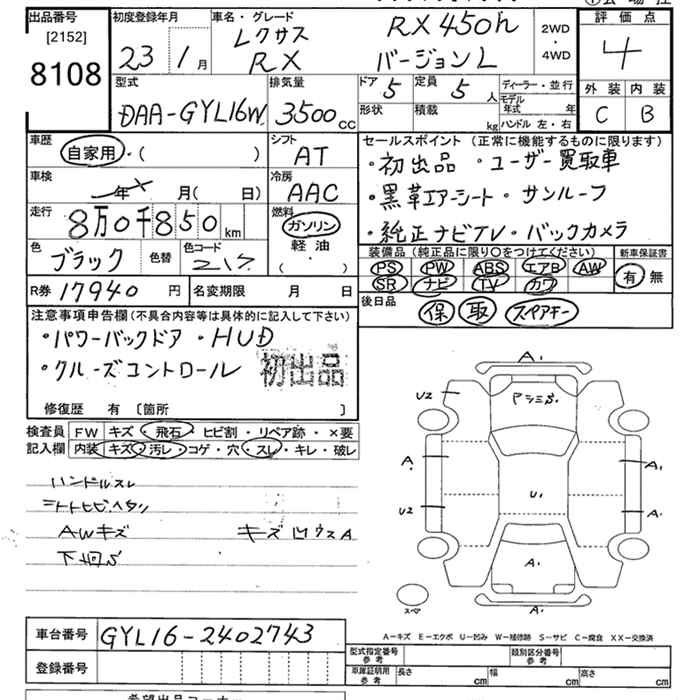 出品番号
[2152]
8108
初度登録年月
23 1月
車名・グレード
レクサス RX450h
RX バージョンL
2WD
・
4WD
評価点
4
外装 内装
C B
型式
DAA-GYL16W
排気量
3500cc
ドア 5
定員 5人
形状
積載 kg
ディーラー・並行
モデル年式 年
ハンドル 左・右
車歴
自家用・( )
シフト
AT
車検
年 月( 日)
冷房
AAC
走行
8万0千850km
燃料
ガソリン
軽油
( ・ )
色
ブラック
色替
色コード
217
R券 17940円
名変期限 月 日
セールスポイント(正常に機能するものに限ります)
・初出品 ・ユーザー買取車
・黒革エアーシート・サンルーフ
・純正ナビTV・バックカメラ
装備品(純正品に限り○をつけてください)
PS PW ABS エアB AW
SR ナビ TV カワ
新車保証書
有 無
後日品
保 取 スペアキー
注意事項申告欄(不具合内容等は具体的に記入して下さい)
・パワーバックドア・HUD
・クルーズコントロール
初出品
修復歴 有 〔箇所 〕
検査員 FW キズ・飛石・ヒビ割・リペア跡・×要
記入欄 内装 キズ・汚レ・コゲ・穴・スレ・キレ・破レ
ハンドルスレ
シートヒビヘタリ
AWキズ キズ凹ウスA
下廻S
A1
U2
A
A1
U2
U1
A1
A1
A1
スペア
A-キズ E-エクボ U-凹み W-補修跡 S-サビ C-腐食 XX-交換済
車台番号 GYL16-2402743
登録番号
型式指定番号 参考
類別区分番号 参考
車庫証明用 参考 長さ cm 幅 cm 高さ cm